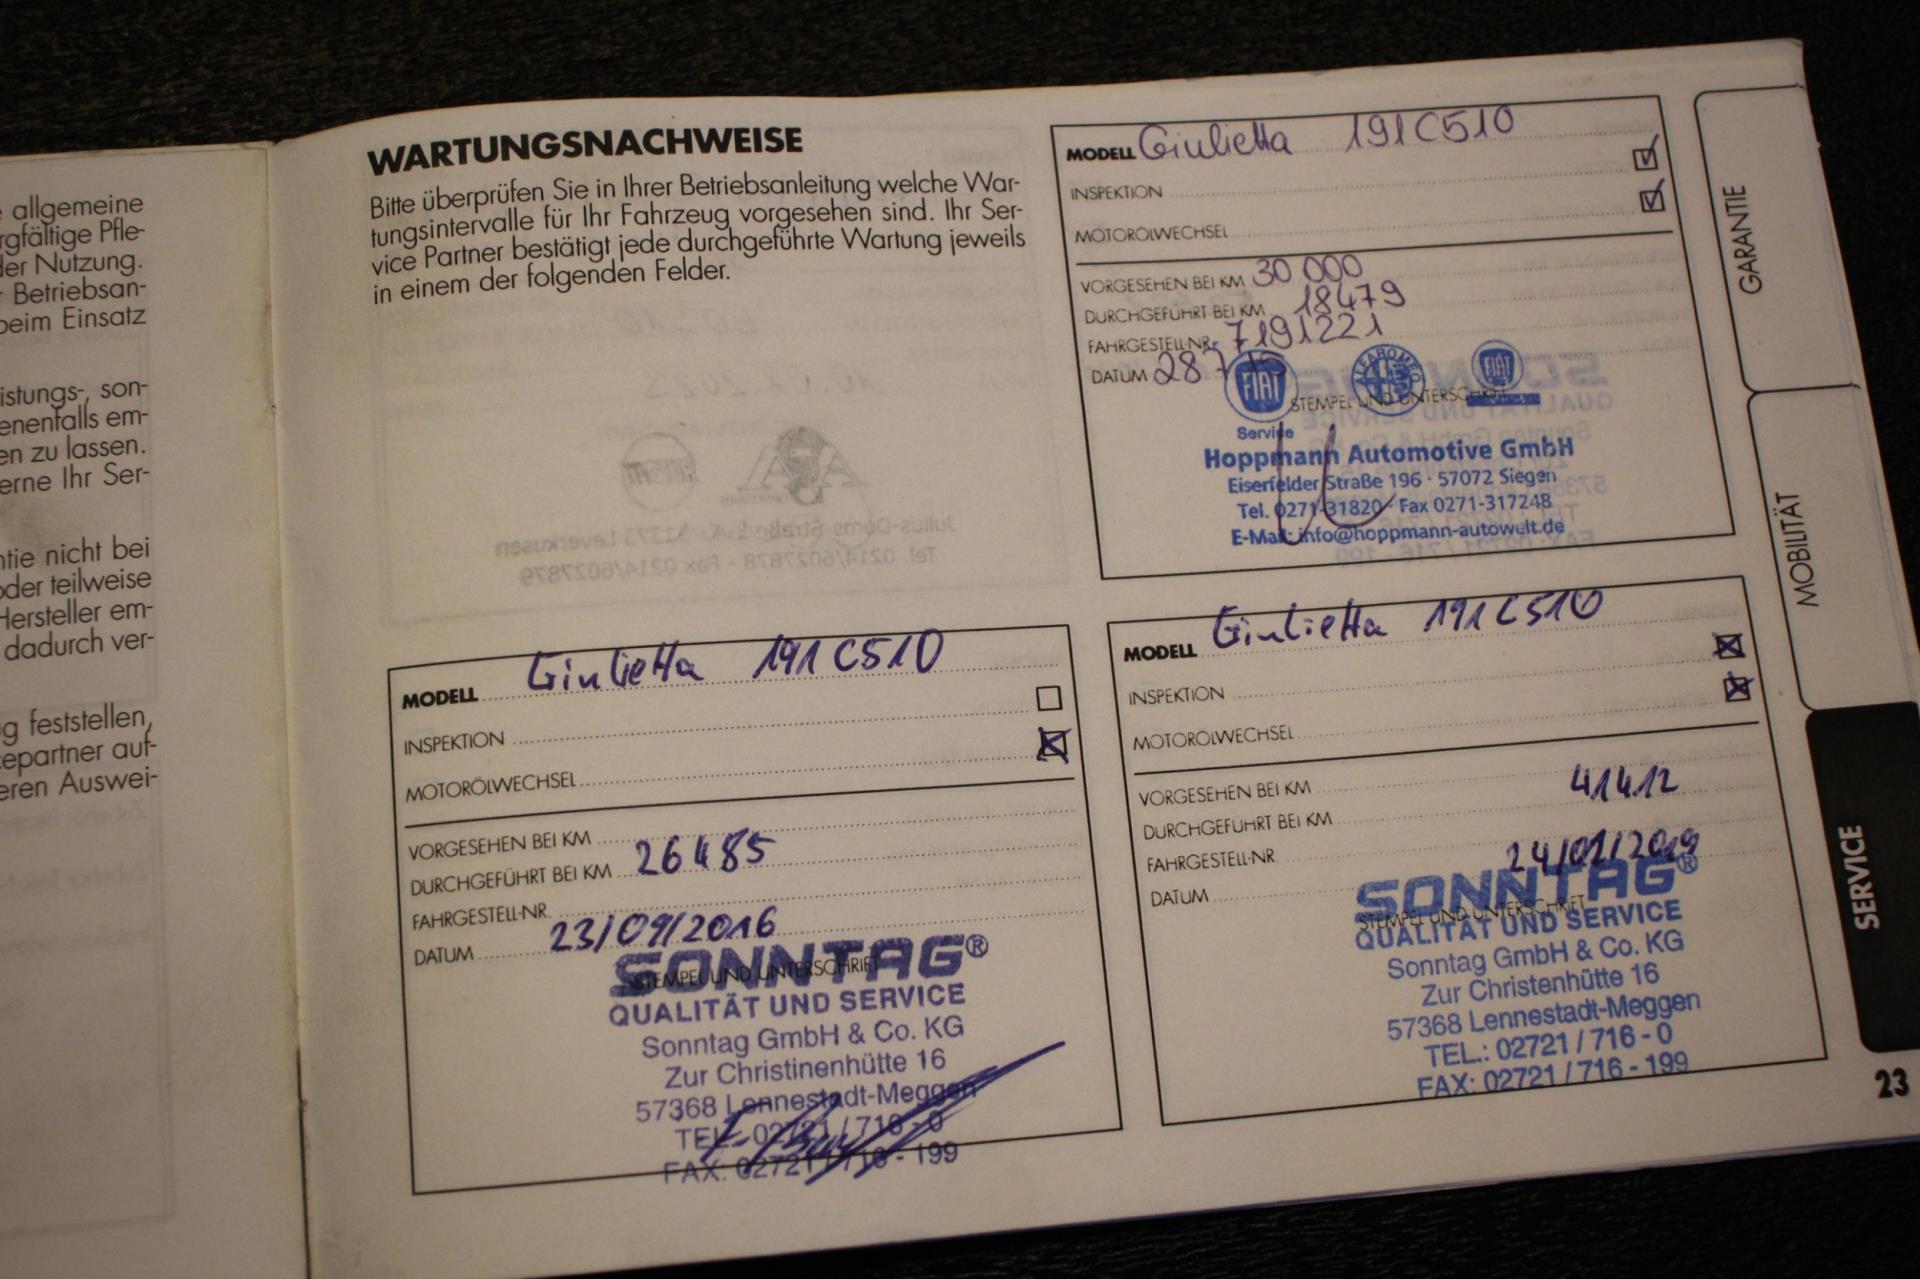 allgemeine
rgfältige Pfle-
der Nutzung.
Betriebsan-
beim Einsatz
istungs-, son-
enenfalls em-
en zu lassen.
erne Ihr Ser-
ntie nicht bei
oder teilweise
Hersteller em-
dadurch ver-
g feststellen,
cepartner auf-
eren Auswei-
WARTUNGSNACHWEISE
Bitte überprüfen Sie in Ihrer Betriebsanleitung welche War-
tungsintervalle für Ihr Fahrzeug vorgesehen sind. Ihr Ser-
vice Partner bestätigt jede durchgeführte Wartung jeweils
in einem der folgenden Felder.
MODELL Giulietta 191C510
INSPEKTION
MOTORÖLWECHSEL
VORGESEHEN BEI KM 30 000
DURCHGEFÜHRT BEI KM 18479
FAHRGESTELL-NR. 7191221
DATUM 28.7.15
FIAT
ALFA ROMEO
FIAT
STEMPEL UND UNTERSCHRIFT
Service
Hoppmann Automotive GmbH
Eiserfelder Straße 196 · 57072 Siegen
Tel. 0271-31820 · Fax 0271-317248
E-Mail: info@hoppmann-autowelt.de
MODELL Giulietta 191C510
INSPEKTION
MOTORÖLWECHSEL
VORGESEHEN BEI KM
DURCHGEFÜHRT BEI KM 26485
FAHRGESTELL-NR.
DATUM 23/09/2016
SONNTAG®
STEMPEL UND UNTERSCHRIFT
QUALITÄT UND SERVICE
Sonntag GmbH & Co. KG
Zur Christinenhütte 16
57368 Lennestadt-Meggen
TEL.: 02721 / 716 - 0
FAX: 02721 / 716 - 199
MODELL Giulietta 191C510
INSPEKTION
MOTORÖLWECHSEL
VORGESEHEN BEI KM
DURCHGEFÜHRT BEI KM 41412
FAHRGESTELL-NR.
DATUM 24/01/2019
SONNTAG®
STEMPEL UND UNTERSCHRIFT
QUALITÄT UND SERVICE
Sonntag GmbH & Co. KG
Zur Christenhütte 16
57368 Lennestadt-Meggen
TEL.: 02721 / 716 - 0
FAX: 02721 / 716 - 199
GARANTIE
MOBILITÄT
SERVICE
23